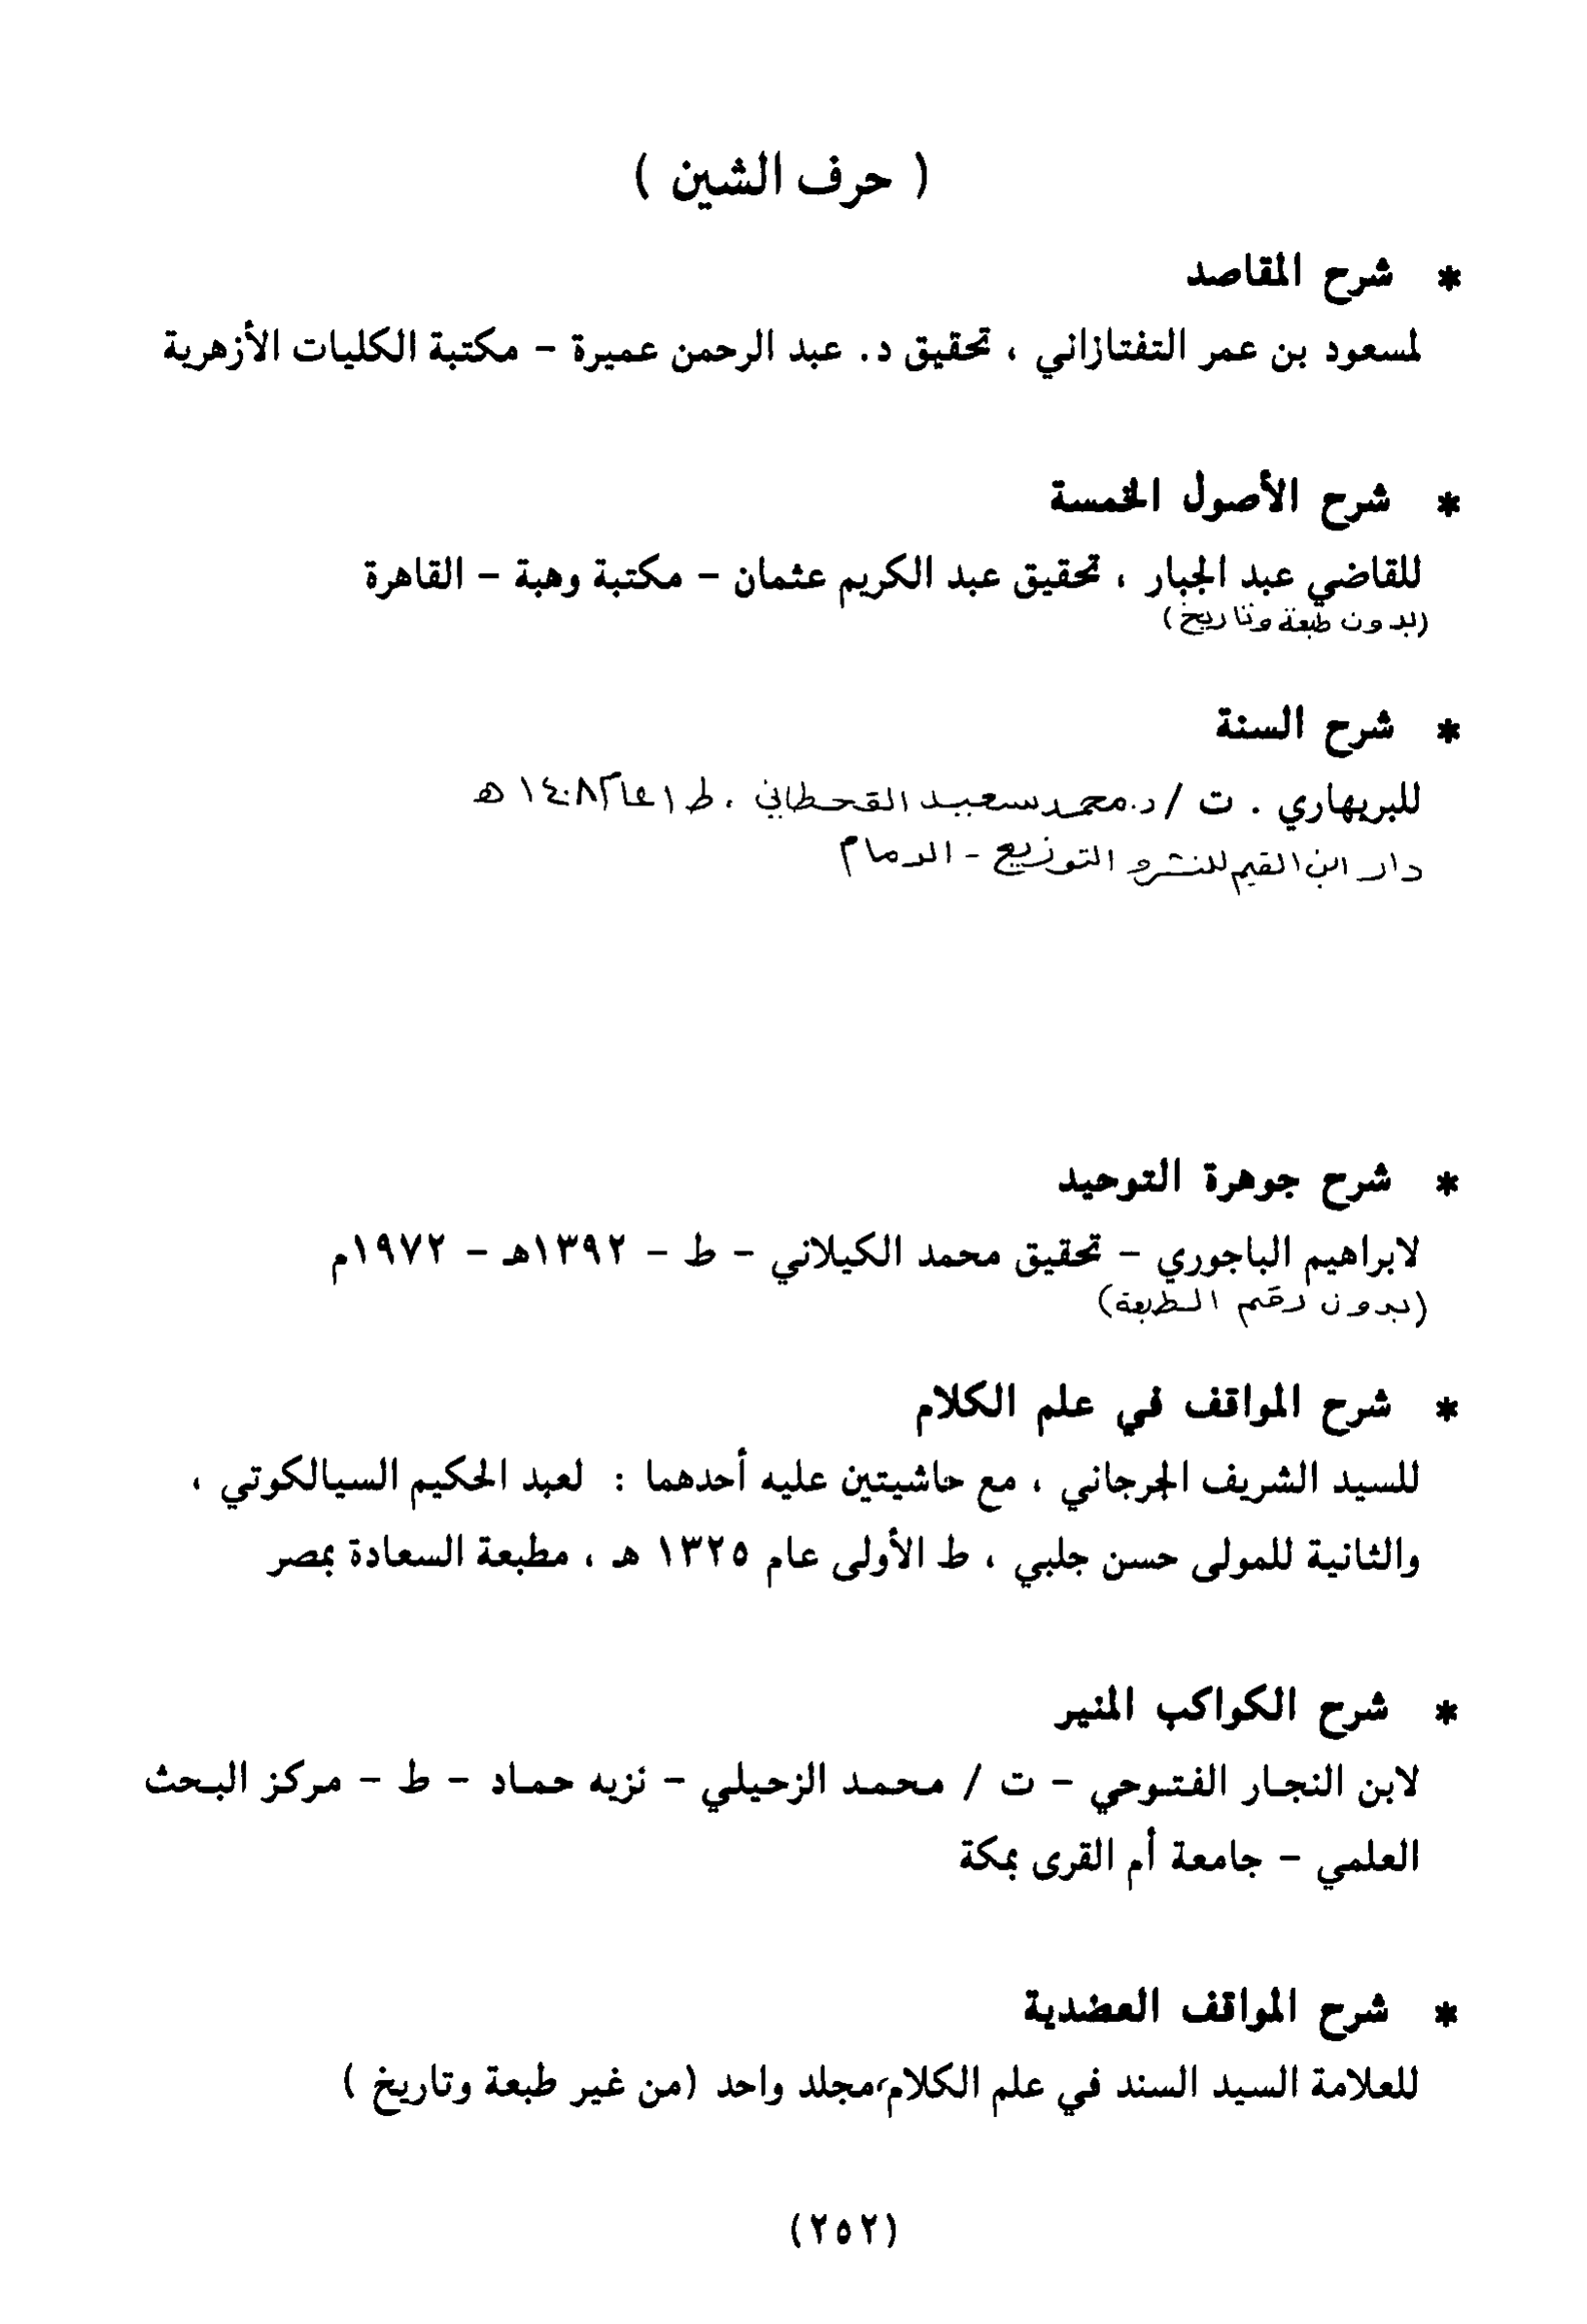 ( حرف الشين )
* شرح المقاصد
لمسعود بن عمر التفتازاني ، تحقيق د. عبد الرحمن عميرة - مكتبة الكليات الأزهرية
* شرح الأصول الخمسة
للقاضي عبد الجبار ، تحقيق عبد الكريم عثمان - مكتبة وهبة - القاهرة
(بدون طبعة وتاريخ)
* شرح السنة
للبربهاري . ت / د. محمد سعيد القحطاني ، ط ١ عام ١٤٠٨ هـ
دار ابن القيم للنشر و التوزيع - الدمام
* شرح جوهرة التوحيد
لابراهيم الباجوري - تحقيق محمد الكيلاني - ط - ١٣٩٢هـ - ١٩٧٢م
(بدون رقم الطبعة)
* شرح المواقف في علم الكلام
للسيد الشريف الجرجاني ، مع حاشيتين عليه أحدهما : لعبد الحكيم السيالكوتي ،
والثانية للمولى حسن جلبي ، ط الأولى عام ١٣٢٥ هـ ، مطبعة السعادة بمصر
* شرح الكواكب المنير
لابن النجار الفتوحي - ت / محمد الزحيلي - نزيه حماد - ط - مركز البحث
العلمي - جامعة أم القرى بمكة
* شرح المواقف العضدية
للعلامة السيد السند في علم الكلام،مجلد واحد (من غير طبعة وتاريخ )
(٢٥٢)